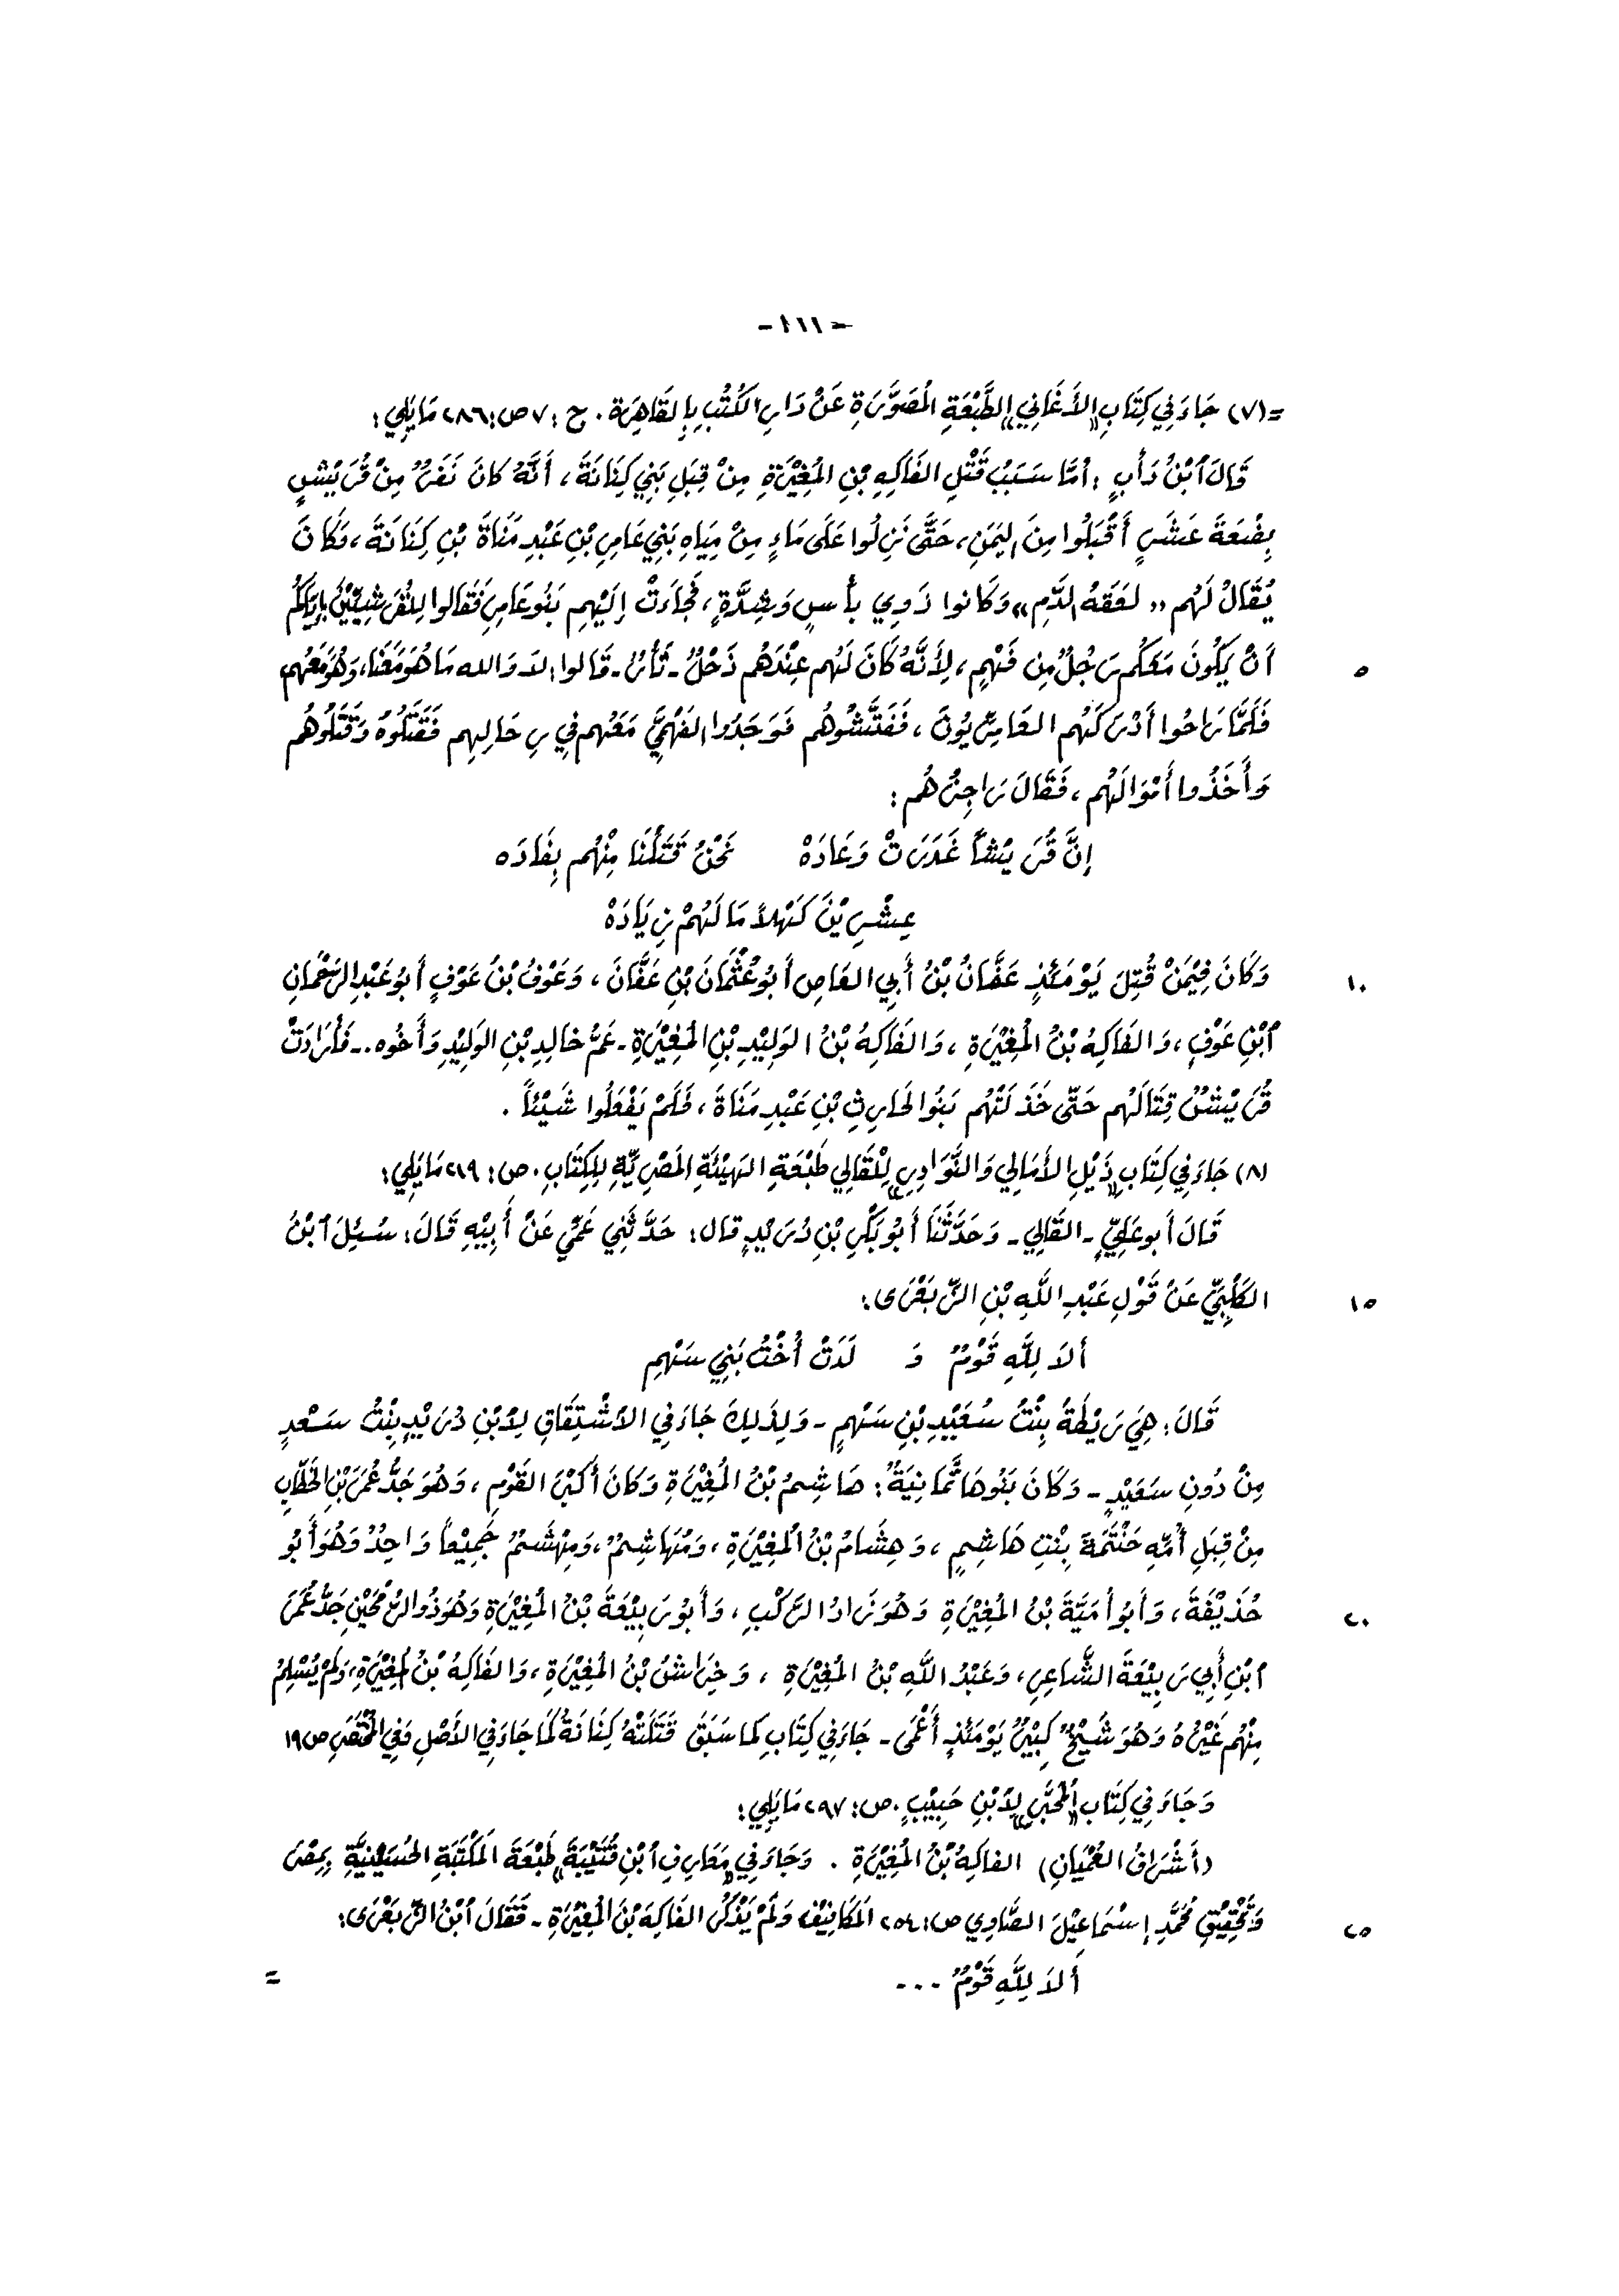 - ١١١ -
= (٧) جَاءَ فِي كِتَابِ «الأَغَانِي» الطَّبْعَةِ المُصَوَّرَةِ عَنْ دَارِ الكُتُبِ بِالقَاهِرَة . ج : ٧ ص : ٢٨٦ مَايَلِي :
قَالَ ٱبْنُ دَأْبٍ : أَمَّا سَبَبُ قَتْلِ الفَاكِهِ بْنِ المُغِيْرَةِ مِنْ قِبَلِ بَنِي كِنَانَةَ ، أَنَّهُ كَانَ نَفَرٌ مِنْ قُرَيْشٍ
بِضْعَةَ عَشَرَ أَقْبَلُوا مِنَ اليَمَنِ ، حَتَّى نَزِلُوا عَلَى مَاءٍ مِنْ مِيَاهِ بَنِي عَامِرِ بْنِ عَبْدِ مَنَاةَ بْنِ كِنَانَةَ ، وَكَانَ
يُقَالُ لَهُم « لَعَقَةُ الدَّمِ » وَكَانوا ذَوِي بأْسٍ وَشِدَّةٍ ، فَجَاءَتْ إِلَيْهِم بَنُو عَامِرٍ فَقَالوا لِلْقُرَشِيِّيْنَ إِيَّاكُم
٥ أَنْ يَكُونَ مَعَكُم رَجُلٌ مِن فَهْمٍ ، لِأَنَّهُ كَانَ لَهُم عِنْدَهُم ذَحْلٌ - ثَأْرٌ - قَالوا : لاَ وَالله مَا هُوَ مَعَنَا ، وَهُوَ مَعَهُم
فَلَمَّا رَاحُوا أَدْرَكَهُم العَامِرِيُّونَ ، فَفَتَّشُوهُم فَوَجَدُوا الفَهْمِيَّ مَعَهُم فِي رِحَالِهِم فَقَتَلُوهُ وَقَتَلُوهُم
وَأَخَذُوا أَمْوَالَهُم ، فَقَالَ رَاجِزُهُم :
إِنَّ قُرَيْشاً غَدَرَتْ وَعَادَهْ نَحْنُ قَتَلْنَا مِنْهُم بِفَادَه
عِشْرِيْنَ كَهْلاً مَا لَهُمْ زِيَادَهْ
١٠ وَكَانَ فِيْمَنْ قُتِلَ يَوْمَئذٍ عَفَّانُ بْنُ أَبِي العَاصِ أَبُو عُثْمَانَ بْنِ عَفَّانَ ، وَعَوْفُ بْنُ عَوْفٍ أَبُو عَبْدِ الرَّحْمَانِ
ٱبْنِ عَوْفٍ ، وَالفَاكِهُ بْنُ المُغِيْرَةِ ، وَالفَاكِهُ بْنُ الوَلِيْدِ بْنِ المُغِيْرَةِ - عَمُّ خَالِدِ بْنِ الوَلِيْدِ وَأَخُوه . - فَأَرَادَتْ
قُرَيْشٌ قِتَالَهُم حَتَّى خَذَلَتْهُم بَنُو الحَارِثِ بْنِ عَبْدِ مَنَاةَ ، فَلَمْ يَفْعَلُوا شَيْئاً .
(٨) جَاءَ فِي كِتَابِ «ذَيْلِ الأَمَالِي وَالنَّوَادِرِ» لِلْقَالِي طَبْعَةِ الهَيْئَةِ المَصْرِيَّةِ لِلكِتَابِ . ص : ٢١٩ مَايَلِي :
قَالَ أَبو عَلِيٍّ - القَالِي - وَحَدَّثَنَا أَبُو بَكْرِ بْنِ دُرَيْدٍ قال : حَدَّثَنِي عَمِّي عَنْ أَبِيْهِ قَالَ : سُئِلَ ٱبْنُ
١٥ الكَلْبِيِّ عَنْ قَوْلِ عَبْدِ اللَّهِ بْنِ الزِّبَعْرَى :
أَلاَ لِلَّهِ قَوْمٌ وَ لَدَتْ أُخْتُ بَنِي سَهْمِ
قَالَ : هِيَ رَيْطَةُ بِنْتُ سُعَيْدِ بْنِ سَهْمٍ - وَلِذَلِكَ جَاءَ فِي الاشْتِقَاقِ لِابْنِ دُرَيْدٍ بِنْتُ سَعْدٍ
مِنْ دُونِ سَعَيْدٍ - وَكَانَ بَنُوهَا ثَمَانِيَةً : هَاشِمُ بْنُ المُغِيْرَةِ وَكَانَ أَكْبَرَ القَوْمِ ، وَهُوَ جَدُّ عُمَرَ بْنِ الخَطَّابِ
مِنْ قِبَلِ أُمِّهِ حَنْتَمَةَ بِنْتِ هَاشِمٍ ، وَهِشَامُ بْنُ المُغِيْرَةِ ، وَمُهَاشِمُ ، وَمِهْشَمُ جَمِيْعاً وَاحِدٌ وَهُوَ أَبُو
٢٠ حُذَيْفَةَ ، وَأَبُو أُمَيَّةَ بْنُ المُغِيْرَةِ وَهُوَ زَادُ الرَّكْبِ ، وَأَبُو رَبِيْعَةَ بْنُ المُغِيْرَةِ وَهُوَ ذُو الرُّمْحَيْنِ جَدُّ عُمَرَ
ٱبْنِ أَبِي رَبِيْعَةَ الشَّاعِرِ ، وَعَبْدُ اللَّهِ بْنُ المُغِيْرَةِ ، وَخِرَاشُ بْنُ المُغِيْرَةِ ، وَالفَاكِهُ بْنُ المُغِيْرَةِ ، وَلَمْ يُسْلِمْ
مِنْهُم غَيْرُهُ وَهُوَ شَيْخٌ كَبِيْرٌ يَوْمَئذٍ أَعْمَى - جَاءَ فِي كِتَابِ كَما سَبَقَ قَتَلَتْهُ كِنَانَةُ كَمَا جَاءَ فِي الأَصْلِ وَفِي المُخْتَصَرِ ص ١٩
وَجَاءَ فِي كِتَابِ «المُحَبَّرِ» لِابْنِ حَبِيْبٍ . ص : ٢٩٧ مَايَلِي :
(أَشْرَافُ العُمْيَانِ) الفاكِهُ بْنُ المُغِيْرَةِ . وَجَاءَ فِي «مَعَارِفِ ٱبْنِ قُتَيْبَةَ» طَبْعَةَ المَكْتَبَةِ الحُسَيْنِيَّةِ بِمِصْرَ
٢٥ وَتَحْقِيْقِ مُحَمَّدِ إِسْمَاعِيْلَ الصَّاوِي ص : ٢٥٤ المَكَافِيْفُ وَلَمْ يَذْكُرِ الفَاكِهَ بْنَ المُغِيْرَةِ - فَقَالَ ٱبْنُ الزِّبَعْرَى :
أَلاَ لِلَّهِ قَوْمٌ ...
=